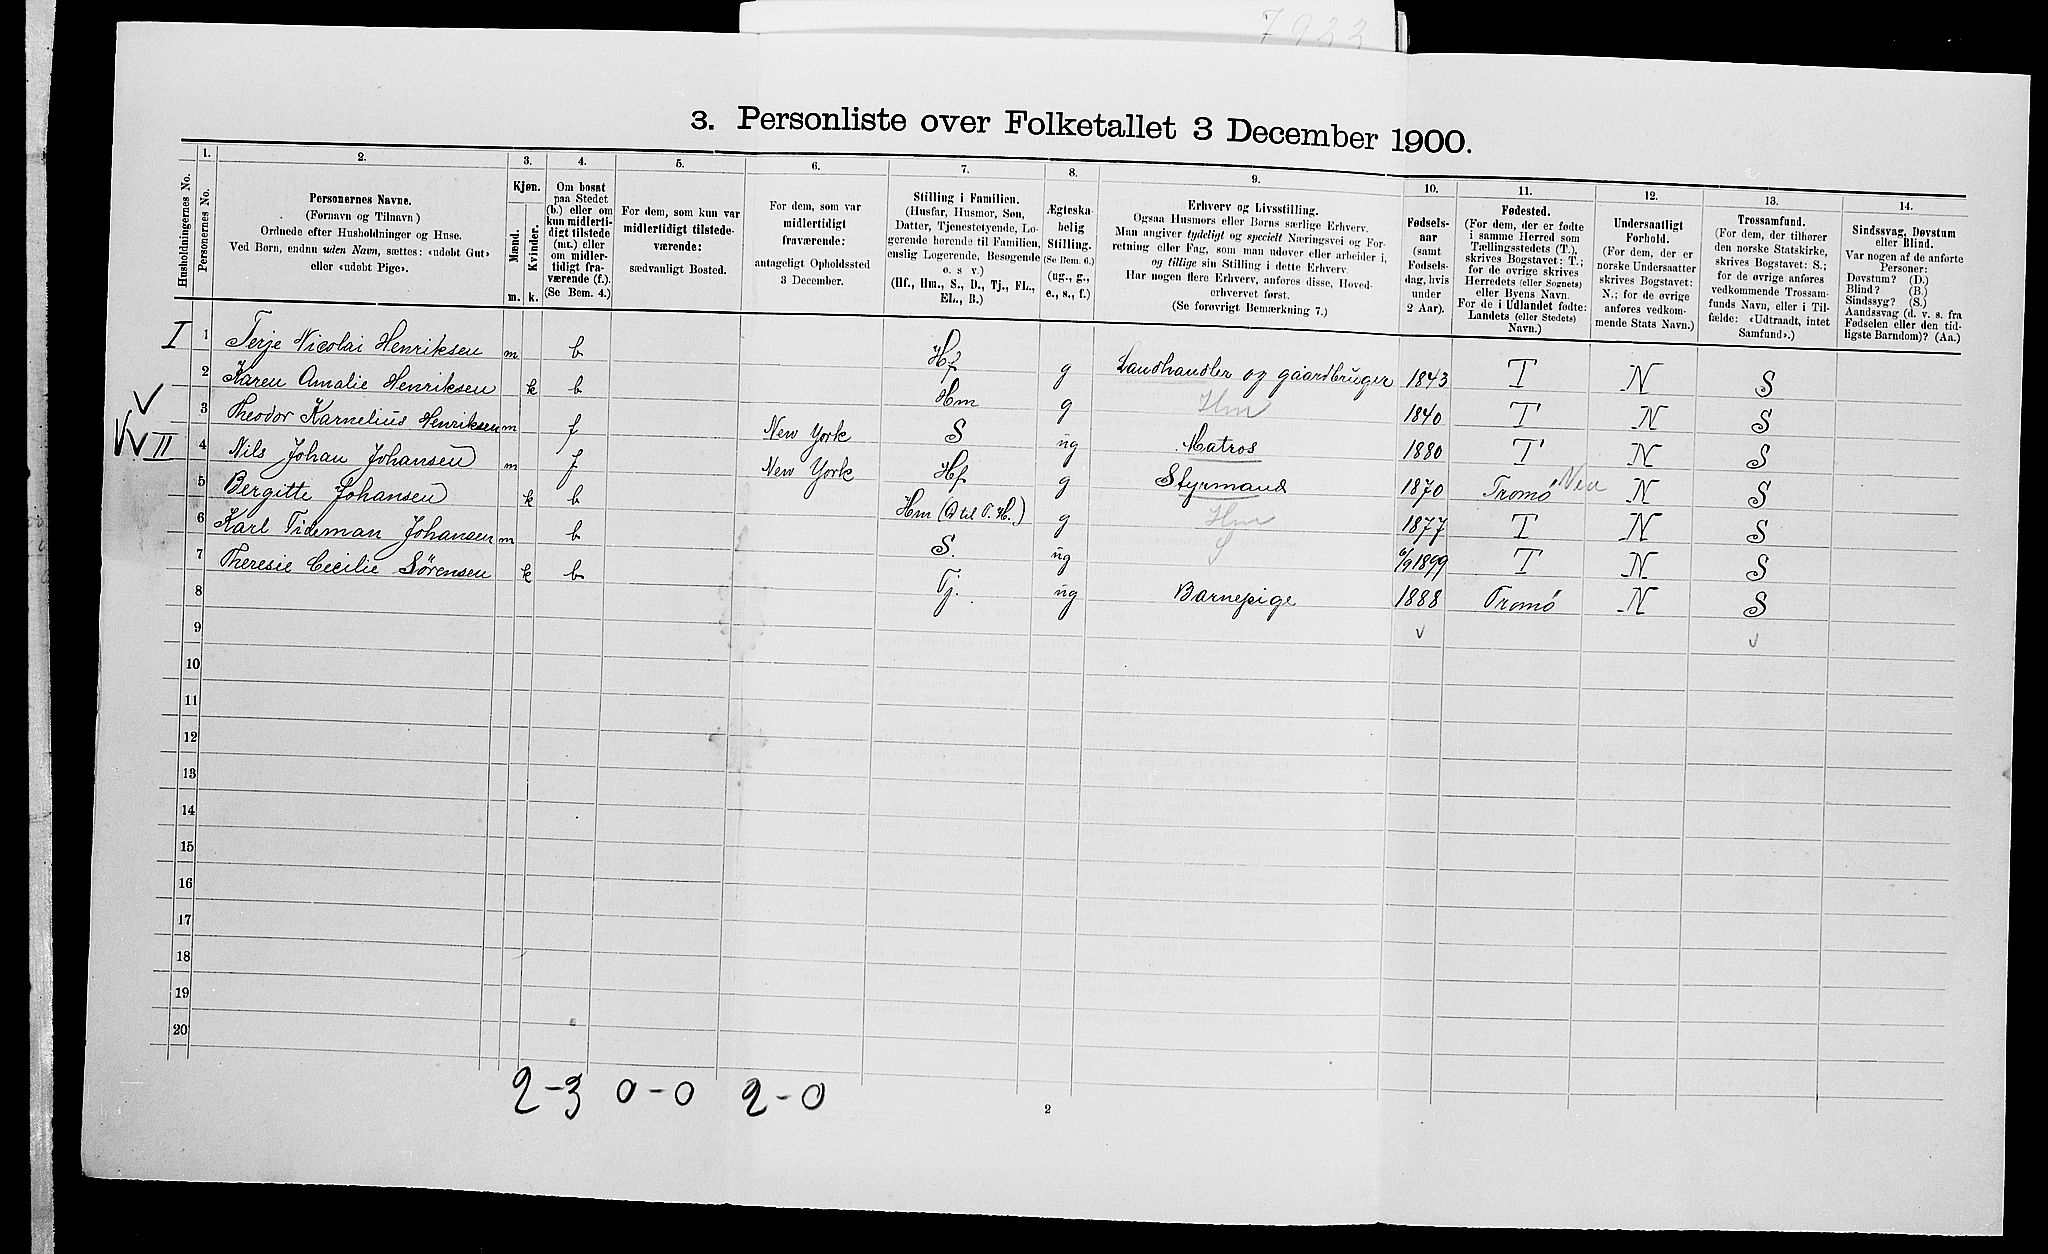 7922
3. Personliste over Folketallet 3 December 1900.
Husholdningernes No.
1.
Personernes No.
2.
Personernes Navne.
(Fornavn og Tilnavn)
Ordnede efter Husholdninger og Huse.
Ved Børn, endnu uden Navn, sættes: «udøbt Gut»
eller «udøbt Pige».
3.
Kjøn.
Mænd. Kvinder.
m. k.
4.
Om bosat
paa Stedet
(b.) eller om
kun midlerti-
digt tilstede
(mt.) eller
om midler-
tidigt fra-
værende (f.).
(Se Bem. 4.)
5.
For dem, som kun var
midlertidigt tilstede-
værende:
sædvanligt Bosted.
6.
For dem, som var
midlertidigt
fraværende:
antageligt Opholdssted
3 December.
7.
Stilling i Familien.
(Husfar, Husmor, Søn,
Datter, Tjenestetyende, Lo-
gerende hørende til Familien,
enslig Logerende, Besøgende
o. s v.)
(Hf., Hm., S., D., Tj., FL.,
EL., B.)
8.
Ægteska-
belig
Stilling.
(Se Bem. 6.)
(ug., g.,
e., s., f.)
9.
Erhverv og Livsstilling.
Ogsaa Husmors eller Børns særlige Erhverv.
Man angiver tydeligt og specielt Næringsvei og For-
retning eller Fag, som man udøver eller arbeider i,
og tillige sin Stilling i dette Erhverv.
Har nogen flere Erhverv, anføres disse, Hoved-
erhvervet først.
(Se forøvrigt Bemærkning 7.)
10.
Fødsels-
aar
(samt
Fødsels-
dag, hvis
under
2 Aar).
11.
Fødested.
(For dem, der er fødte
i samme Herred som
Tællingsstedets (T.),
skrives Bogstavet: T.;
for de øvrige skrives
Herredets (eller Sognets)
eller Byens Navn.
For de i Udlandet fødte:
Landets (eller Stedets)
Navn.)
12.
Undersaatligt
Forhold.
(For dem, der er
norske Undersaatter
skrives Bogstavet:
N.; for de øvrige
anføres vedkom-
mende Stats Navn.)
13.
Trossamfund.
(For dem, der tilhører
den norske Statskirke,
skrives Bogstavet: S.;
for de øvrige anføres
vedkommende Trossam-
funds Navn, eller i Til-
fælde: «Udtraadt, intet
Samfund».)
14.
Sindssvag, Døvstum
eller Blind.
Var nogen af de anførte
Personer:
Døvstum? (D.)
Blind? (B.)
Sindssyg? (S.)
Aandssvag (d. v. s. fra
Fødselen eller den tid-
ligste Barndom)? (Aa.)
I 1 Terje Nicolai Henriksen m b Hf g Landhandler og gaardbruger 1843 T N S
2 Karen Amalie Henriksen k b Hm g Hm 1840 T N S
3 Theodor Karnelius Henriksen m f New York S ug Matros 1880 T N S
II 4 Nils Johan Johansen m f New York Hf g Styrmand 1870 Tromø N S
5 Bergitte Johansen k b Hm (D til T. H.) g Hm 1877 T N S
6 Karl Tideman Johansen m b S. ug S 6/9 1899 T N S
7 Theresie Cecilie Sörensen k b Tj. ug Barnepige 1888 Tromø N S
8
9
10
11
12
13
14
15
16
17
18
19
20
2-3 0-0 2-0
2